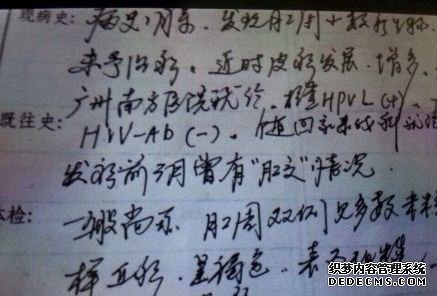 现病史: 病史1月余. 发现肛周小数粒
未予治疗。近时皮疹发展. 增多.
广州南方医院就诊. 检查HPVL(+).
既往史: HIV-Ab (-).
发疹前3月曾有"肛交"情况.
体检: 一般尚可. 肛周双侧见多数
样丘疹. 呈褐色. 表面
织梦内容管理系统
DEDECMS.COM